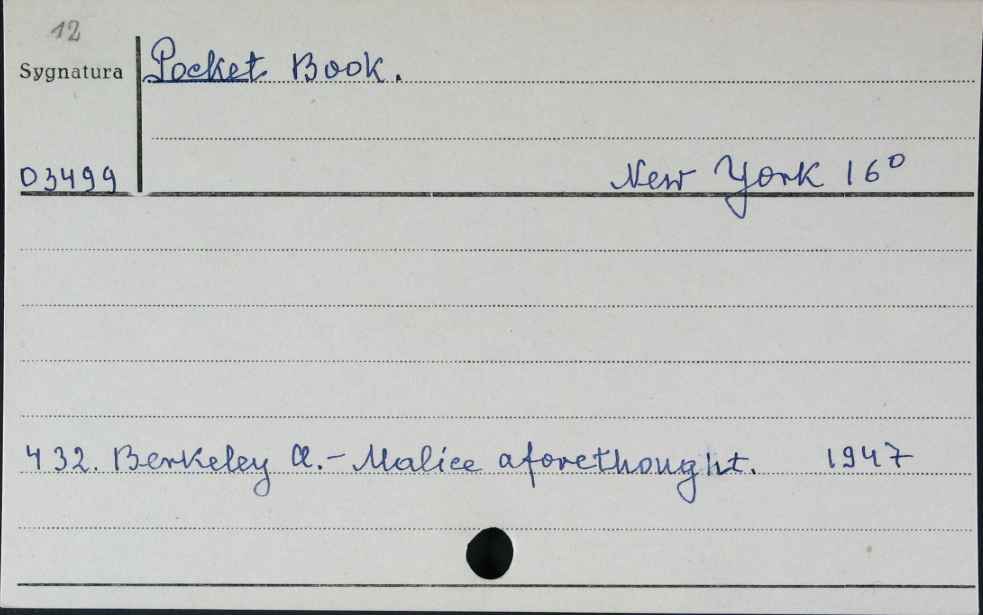 12
Sygnatura
Pocket Book.
03499
New York 16°
432. Berkeley A.- Malice aforethought. 1947